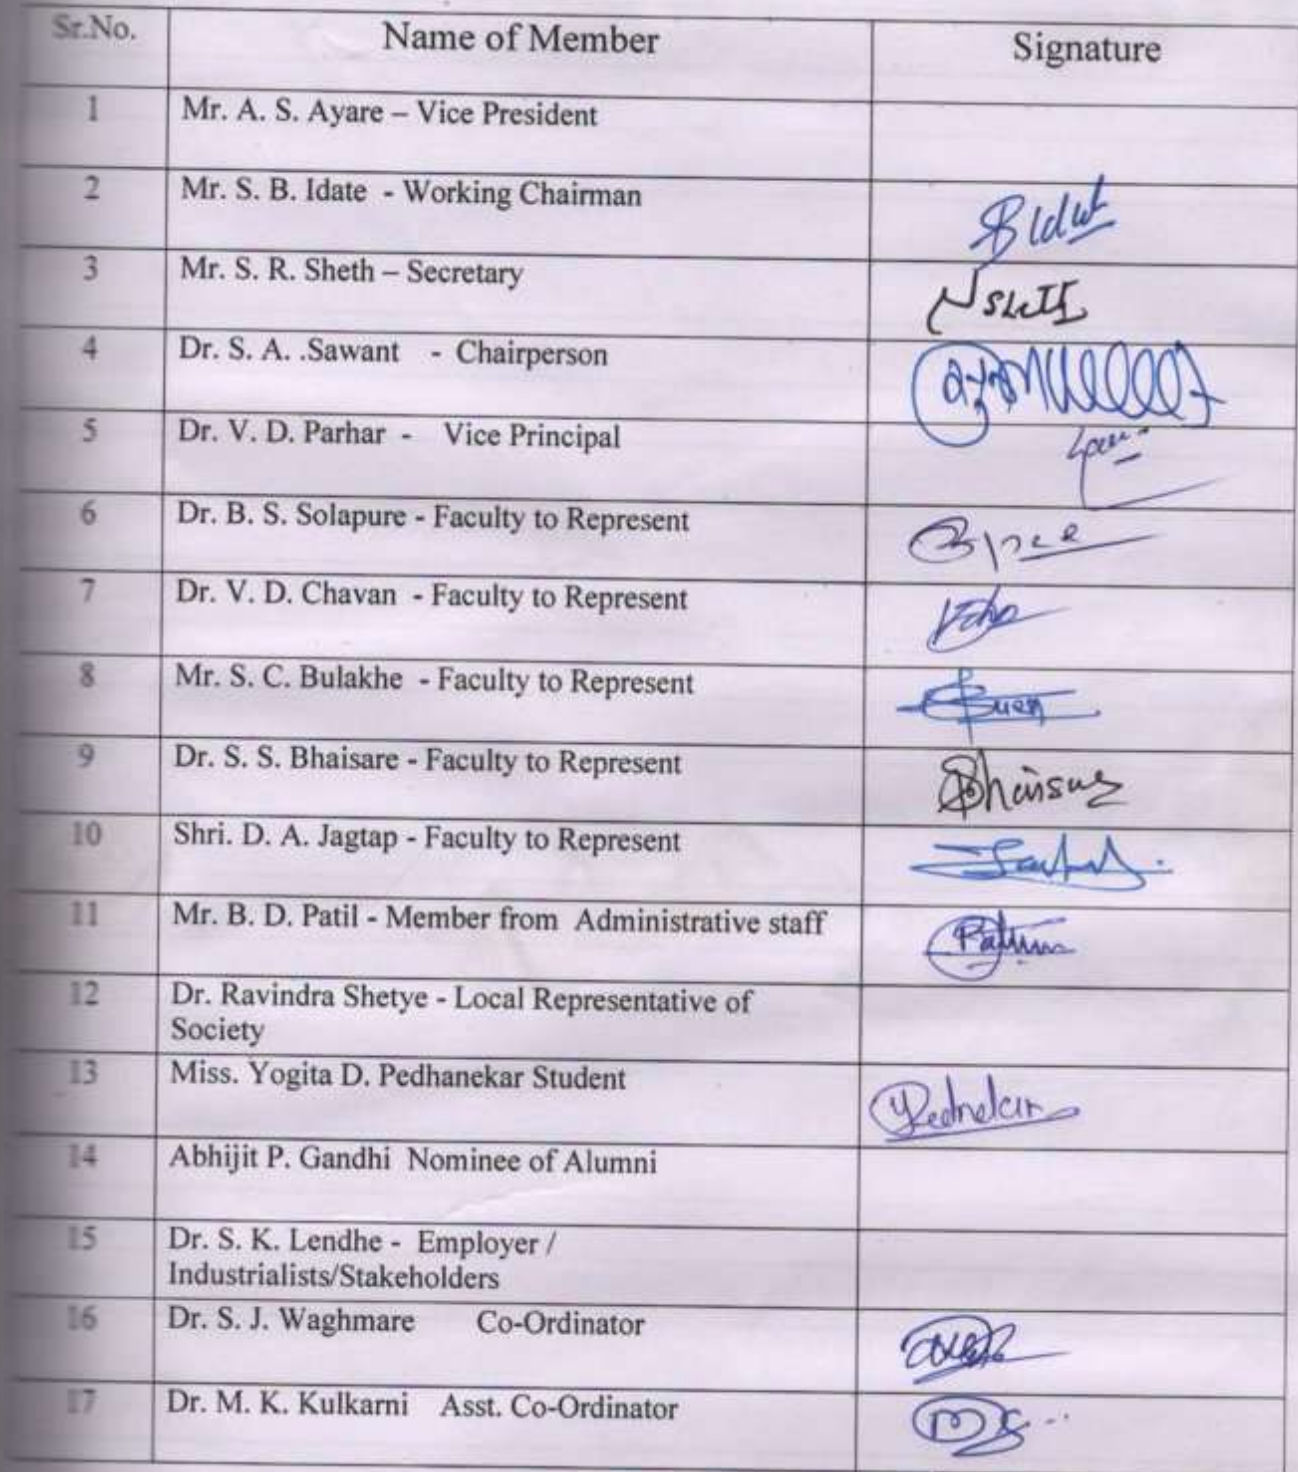 Sr.No. Name of Member Signature
1 Mr. A. S. Ayare – Vice President
2 Mr. S. B. Idate - Working Chairman
3 Mr. S. R. Sheth – Secretary
4 Dr. S. A. .Sawant - Chairperson
5 Dr. V. D. Parhar - Vice Principal
6 Dr. B. S. Solapure - Faculty to Represent
7 Dr. V. D. Chavan - Faculty to Represent
8 Mr. S. C. Bulakhe - Faculty to Represent
9 Dr. S. S. Bhaisare - Faculty to Represent
10 Shri. D. A. Jagtap - Faculty to Represent
11 Mr. B. D. Patil - Member from Administrative staff
12 Dr. Ravindra Shetye - Local Representative of
Society
13 Miss. Yogita D. Pedhanekar Student
14 Abhijit P. Gandhi Nominee of Alumni
15 Dr. S. K. Lendhe - Employer /
Industrialists/Stakeholders
16 Dr. S. J. Waghmare Co-Ordinator
17 Dr. M. K. Kulkarni Asst. Co-Ordinator